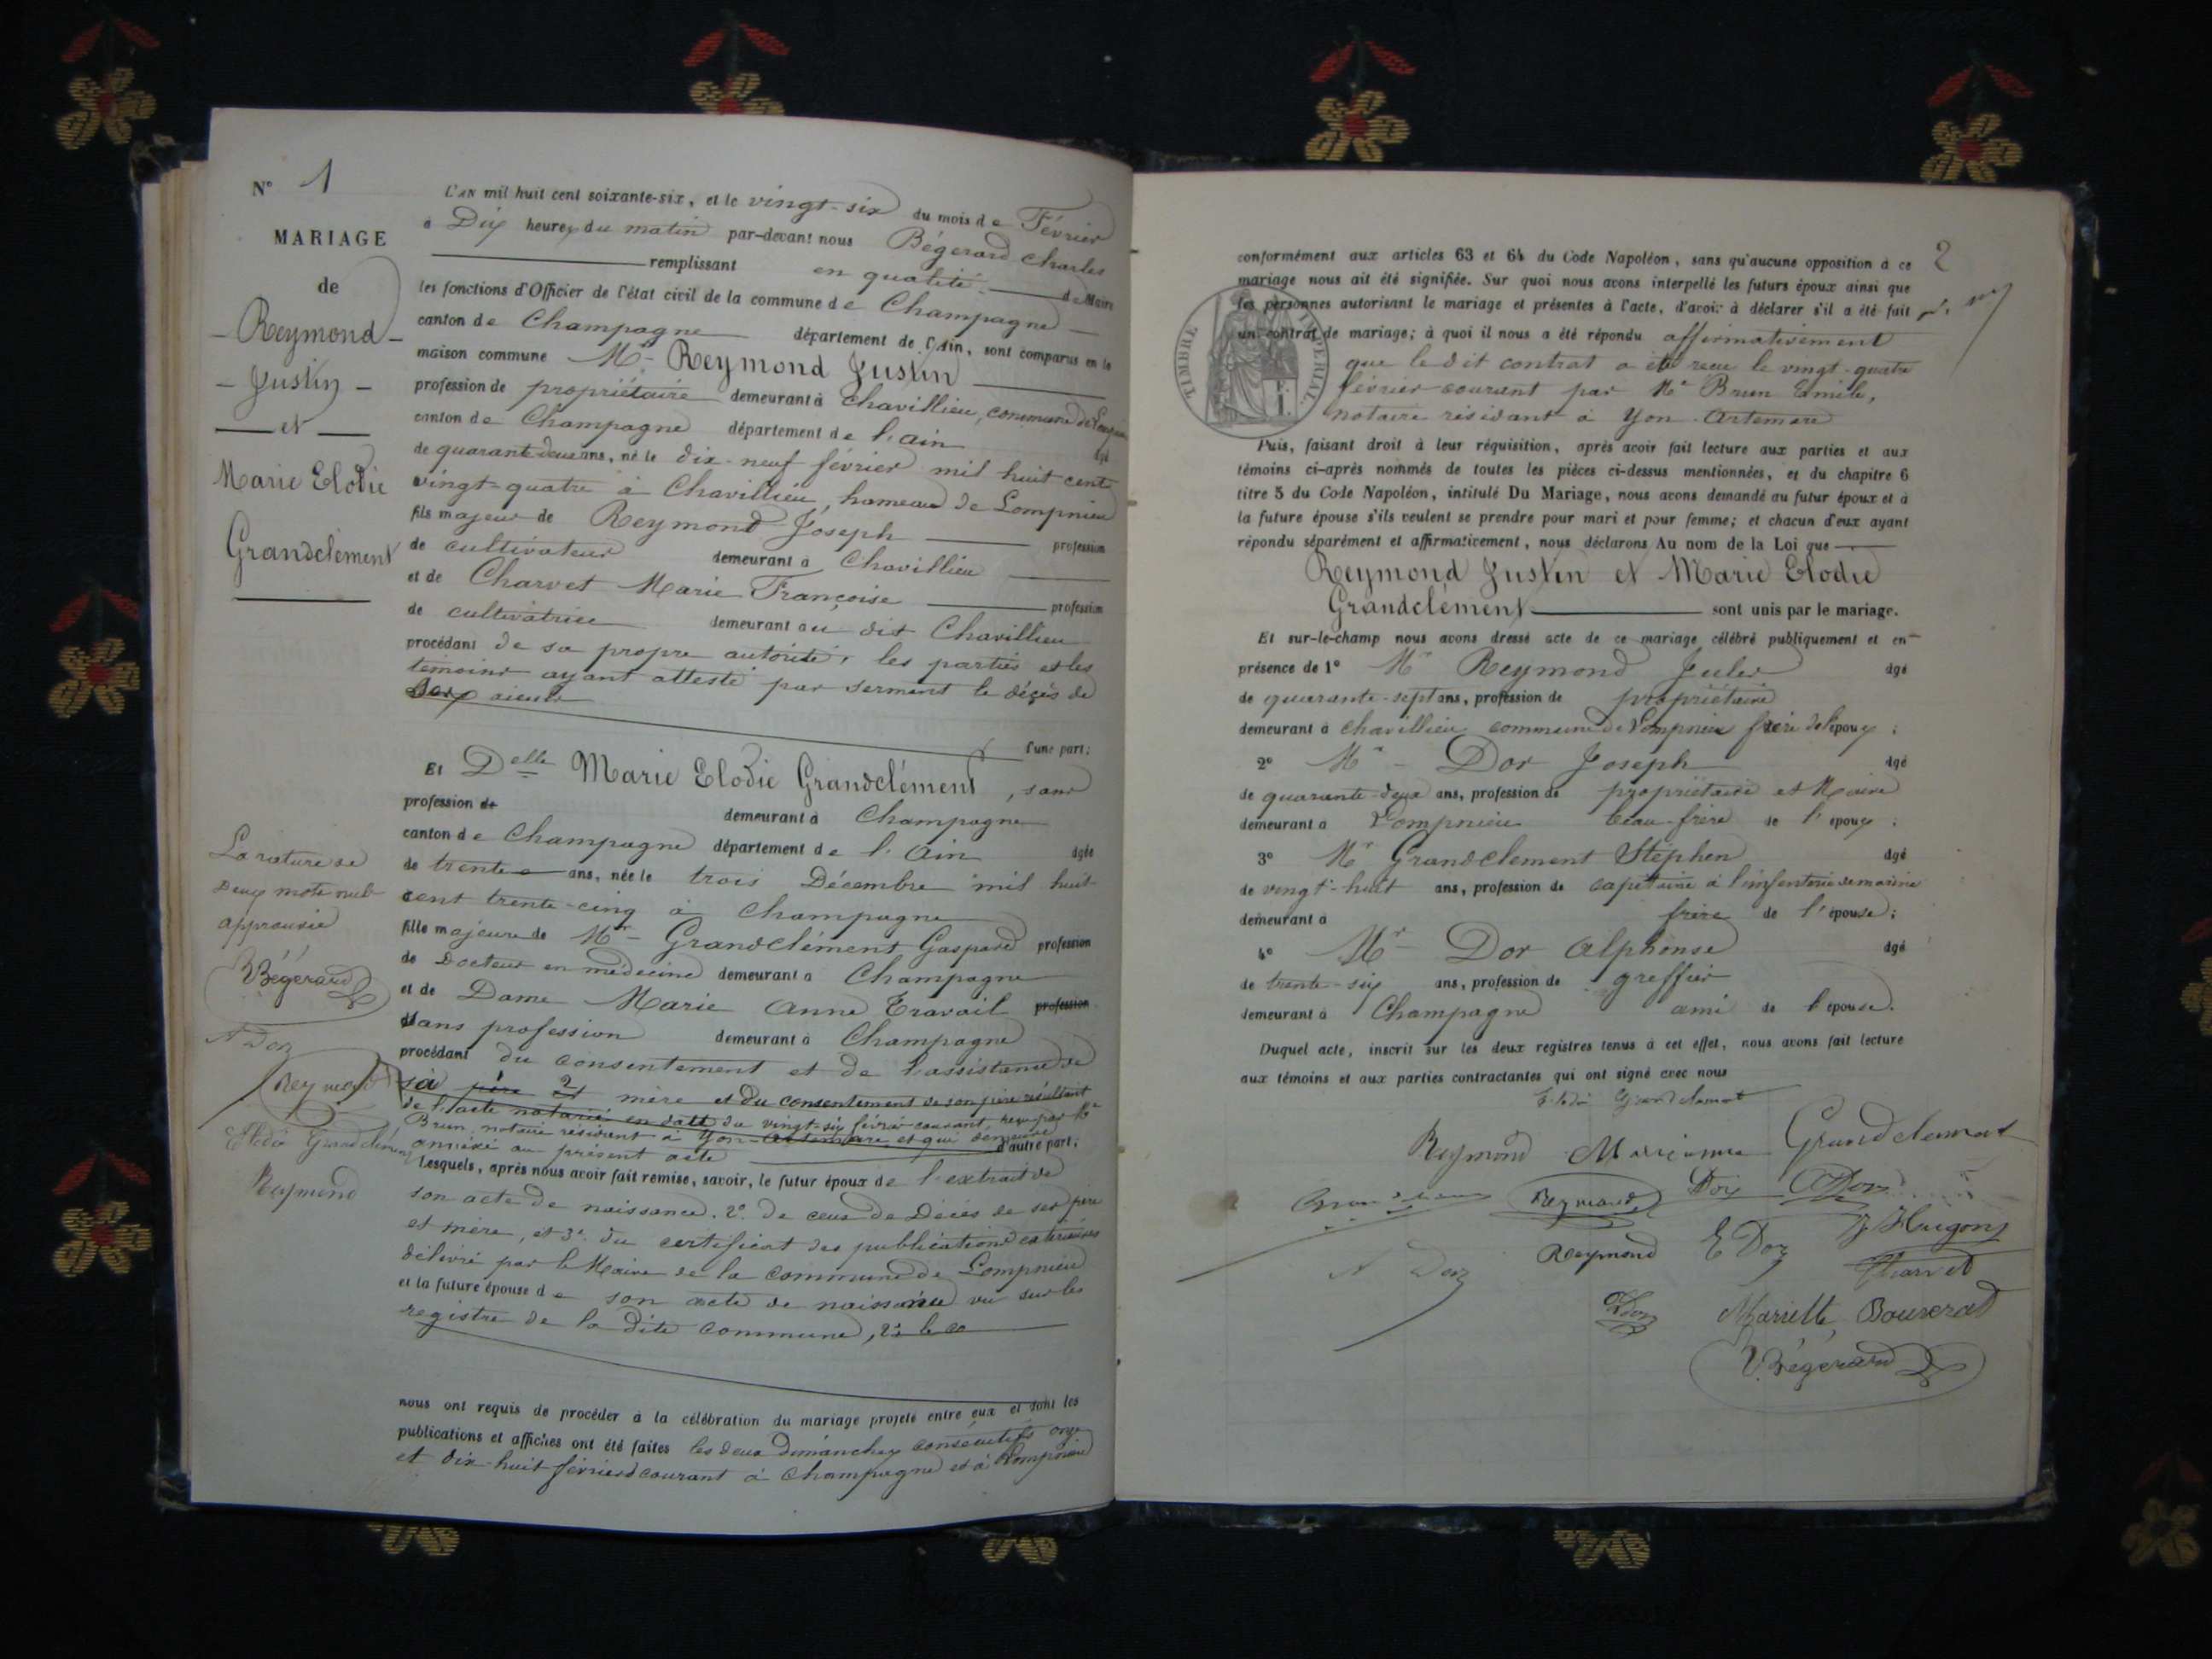 N° 1
MARIAGE
de
Reymond
Justin
et
Marie Elodie
Grandclément
L'AN mil huit cent soixante-six, et le vingt-six du mois de Février
à Dix heures du matin par-devant nous Bégerard Charles
remplissant en qualité de Maire
les fonctions d'Officier de l'état civil de la commune de Champagne
canton de Champagne département de l'Ain, sont comparus en la
maison commune Mr Reymond Justin
profession de propriétaire demeurant à Chavillieu, commune de Lompnieu
canton de Champagne département de l'ain âgé
de quarante-deux ans, né le dix-neuf février mil huit cent
vingt-quatre à Chavillieu, hameau de Lompnieu
fils majeur de Reymond Joseph profession
de cultivateur demeurant à Chavillieu
et de Charvet Marie Françoise profession
de cultivatrice demeurant au dit Chavillieu
procédant de sa propre autorité, les parties et les
témoins ayant attesté par serment le décès de
aieuls
l'une part;
Et Delle Marie Elodie Grandclément, sans
profession de demeurant à Champagne
canton de Champagne département de l'Ain âgée
de trente ans, née le trois Décembre mil huit
cent trente-cinq à Champagne
fille majeure de Mr Grandclément Gaspard profession
de Docteur en médecine demeurant à Champagne
et de Dame Marie Anne Travail profession
sans profession demeurant à Champagne
procédant du consentement et de l'assistance de
sa père et mère et du consentement de son père résultant
de l'acte notarié en date du vingt-six février courant, reçu par Me
Brun notaire résidant à Yon-Artemare et qui demeure
annexé au présent acte d'autre part;
Lesquels, après nous avoir fait remise, savoir, le futur époux de l'extrait de
son acte de naissance. 2° de ceux de Décès de ses père
et mère, et 3° du certificat des publications extérieures
délivré par le Maire de la commune de Lompnieu
et la future épouse de son acte de naissance vu sur les
registre de la dite commune, 2° le co
nous ont requis de procéder à la célébration du mariage projeté entre eux et dont les
publications et affiches ont été faites les deux dimanches consécutifs onze
et dix-huit février courant à Champagne et à Lompnieu
La rature de
Deux mots nuls
approuvée
Bégerard
A Dor
Reymond
Elodie Grandclément
Reymond
2
conformément aux articles 63 et 64 du Code Napoléon, sans qu'aucune opposition à ce
mariage nous ait été signifiée. Sur quoi nous avons interpellé les futurs époux ainsi que
les personnes autorisant le mariage et présentes à l'acte, d'avoir à déclarer s'il a été fait
un contrat de mariage; à quoi il nous a été répondu affirmativement
que le dit contrat a été reçu le vingt-quatre
février courant par Me Brun Emile,
notaire résidant à Yon-Artemare
TIMBRE IMPERIAL
Puis, faisant droit à leur réquisition, après avoir fait lecture aux parties et aux
témoins ci-après nommés de toutes les pièces ci-dessus mentionnées, et du chapitre 6
titre 5 du Code Napoléon, intitulé Du Mariage, nous avons demandé au futur époux et à
la future épouse s'ils veulent se prendre pour mari et pour femme; et chacun d'eux ayant
répondu séparément et affirmativement, nous déclarons Au nom de la Loi que
Reymond Justin et Marie Elodie
Grandclément sont unis par le mariage.
Et sur-le-champ nous avons dressé acte de ce mariage célébré publiquement et en
présence de 1° Mr Reymond Jules âgé
de quarante-sept ans, profession de propriétaire
demeurant à Chavillieu commune de Lompnieu frère de l'époux;
2° Mr Dor Joseph âgé
de quarante-deux ans, profession de propriétaire et Maire
demeurant à Lompnieu beau-frère de l'époux;
3° Mr Grandclément Stéphen âgé
de vingt-huit ans, profession de capitaine à l'infanterie de marine
demeurant à frère de l'épouse;
4° Mr Dor Alphonse âgé
de trente-six ans, profession de greffier
demeurant à Champagne ami de l'épouse.
Duquel acte, inscrit sur les deux registres tenus à cet effet, nous avons fait lecture
aux témoins et aux parties contractantes qui ont signé avec nous
Elodie Grandclément
Reymond Marianne Grandclement
Reymond Dor ADor
Reymond E Dor J Hugon
A Dor Charvet
Mariette Bouverat
Bégerard